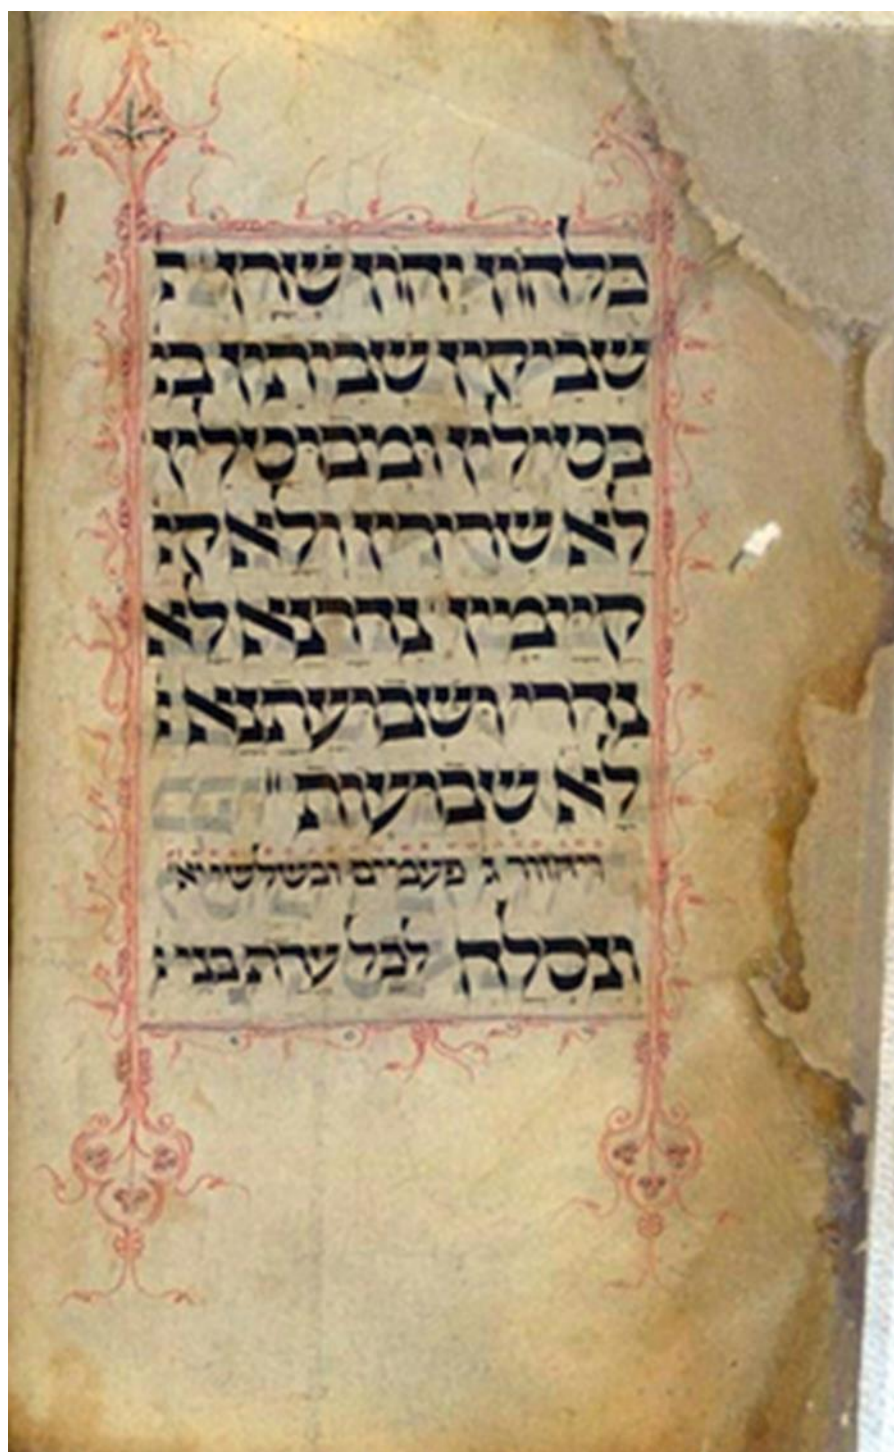 כלהון יהון שרן
שביקין שביתין בי
בטילין ומבוטלין
לא שרירין ולא קי
קיימין נדרנא לא
נדרי ושבועתנא
לא שבועות
ויחזור ג פעמים ובשלשי יא
ונסלח לכל עדת בני י